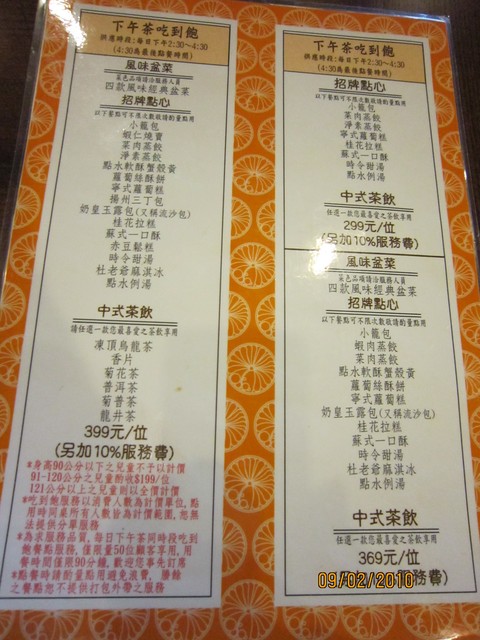 下午茶吃到飽
供應時段:每日下午2:30~4:30
(4:30為最後點餐時間)
風味盆菜
菜色品項請洽服務人員
四款風味經典盆菜
招牌點心
以下餐點可不限次數敬請酌量點用
小籠包
蝦仁燒賣
菜肉蒸餃
淨素蒸餃
點水軟酥蟹殼黃
蘿蔔絲酥餅
寧式蘿蔔糕
揚州三丁包
奶皇玉露包(又稱流沙包)
桂花拉糕
蘇式一口酥
赤豆鬆糕
時令甜湯
杜老爺麻淇冰
點水例湯
中式茶飲
請任選一款您最喜愛之茶飲享用
凍頂烏龍茶
香片
菊花茶
普洱茶
菊普茶
龍井茶
399元/位
(另加10%服務費)
*身高90公分以下之兒童不予以計價
91-120公分之兒童酌收$199/位
121公分以上之兒童則以全價計價
*吃到飽服務以消費人數為計價單位,點
用時同桌所有人數皆為計價範圍,恕無
法提供分單服務
*為求服務品質,每日下午茶同時段吃到
飽餐點服務,僅限量50位顧客享用,用
餐時間僅限90分鐘,歡迎您事先訂席
*點餐時請酌量點用避免浪費, 賸餘
之餐點恕不提供打包外帶之服務
下午茶吃到飽
供應時段:每日下午2:30~4:30
(4:30為最後點餐時間)
招牌點心
以下餐點可不限次數敬請酌量點用
小籠包
菜肉蒸餃
淨素蒸餃
寧式蘿蔔糕
桂花拉糕
蘇式一口酥
時令甜湯
點水例湯
中式茶飲
任選一款您最喜愛之茶飲享用
299元/位
(另加10%服務費)
風味盆菜
菜色品項請洽服務人員
四款風味經典盆菜
招牌點心
以下餐點可不限次數敬請酌量點用
小籠包
蝦肉蒸餃
菜肉蒸餃
點水軟酥蟹殼黃
蘿蔔絲酥餅
寧式蘿蔔糕
奶皇玉露包(又稱流沙包)
桂花拉糕
蘇式一口酥
時令甜湯
杜老爺麻淇冰
點水例湯
中式茶飲
任選一款您最喜愛之茶飲享用
369元/位
服務費)
09/02/2010